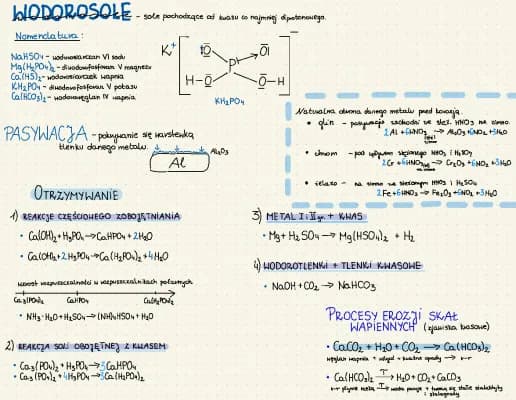 WODOROSOLE - sole pochodzące od kwasu co najmniej diprotonowego.
Nomenklatura:
NaHSO4 - wodorosiarczan VI sodu
Mg(H2PO4)2 - diwodorofosforan V magnezu
Ca(HS)2 - wodorosiarczek wapnia
KH2PO4 - diwodorofosforan V potasu
Ca(HCO3)2 - wodorowęglan IV wapnia
K+
O
O
P
H-O
O-H
-
KH2PO4
PASYWACJA - pokrywanie się warstewką
tlenku danego metalu.
Al2O3
Al
Naturalna obrona danego metalu przed korozją.
• glin - pasywacja zachodzi w stęż. HNO3 na zimno.
2Al + 6HNO3 → Al2O3 + 6NO2 + 3H2O
• chrom - pod wpływem stężonego HNO3 i H2SO4
2Cr + 6HNO3 → Cr2O3 + 6NO2 + 3H2O
• żelazo - na zimno w stężonym HNO3 i H2SO4
2Fe + 6HNO3 → Fe2O3 + 6NO2 + 3H2O
OTRZYMYWANIE
1) REAKCJE CZĘŚCIOWEGO ZOBOJĘTNIANIA
• Ca(OH)2 + H3PO4 → CaHPO4 + 2H2O
• Ca(OH)2 + 2H3PO4 → Ca(H2PO4)2 + 4H2O
wzrost rozpuszczalności w rozpuszczalnikach polarnych
Ca3(PO4)2 CaHPO4 Ca(H2PO4)2
• NH3·H2O + H2SO4 → (NH4)HSO4 + H2O
2) REAKCJA SOLI OBOJĘTNEJ Z KWASEM
• Ca3(PO4)2 + H3PO4 → 3CaHPO4
• Ca3(PO4)2 + 4H3PO4 → 3Ca(H2PO4)2
3) METAL I i II gr. + KWAS
• Mg + H2SO4 → Mg(HSO4)2 + H2
4) WODOROTLENKI + TLENKI KWASOWE
• NaOH + CO2 → NaHCO3
PROCESY EROZJI SKAŁ
WAPIENNYCH (zjawiska krasowe)
• CaCO3 + H2O + CO2 → Ca(HCO3)2
węglan wapnia + wilgoć + kwaśne opady → r-r
• Ca(HCO3)2 T→ H2O + CO2 + CaCO3